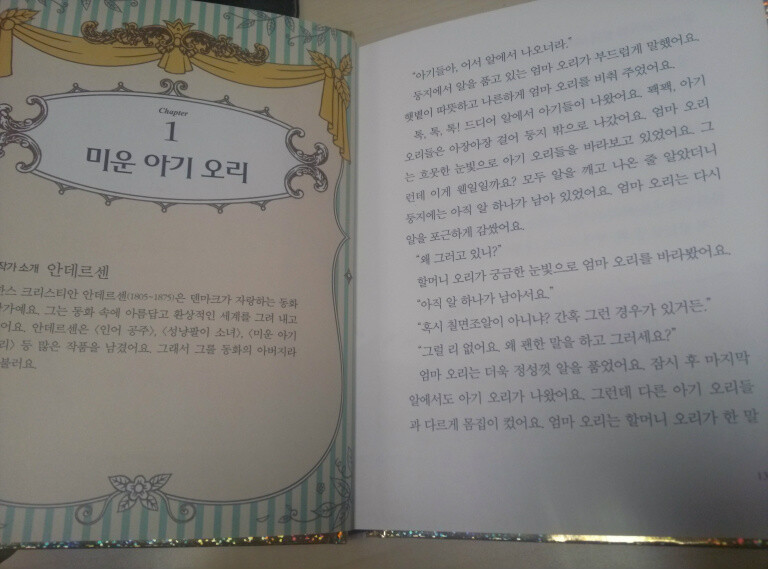 Chapter
1
미운 아기 오리
작가 소개 안데르센
한스 크리스티안 안데르센(1805-1875)은 덴마크가 자랑하는 동화
작가예요. 그는 동화 속에 아름답고 환상적인 세계를 그려 내고
어요. 안데르센은 〈인어 공주〉, 〈성냥팔이 소녀〉, 〈미운 아기
리〉 등 많은 작품을 남겼어요. 그래서 그를 동화의 아버지라
불러요.
“아기들아, 어서 알에서 나오너라.”
둥지에서 알을 품고 있는 엄마 오리가 부드럽게 말했어요.
햇볕이 따뜻하고 나른하게 엄마 오리를 비춰 주었어요.
톡, 톡, 톡! 드디어 알에서 아기들이 나왔어요. 꽥꽥, 아기
오리들은 아장아장 걸어 둥지 밖으로 나갔어요. 엄마 오리
는 흐뭇한 눈빛으로 아기 오리들을 바라보고 있었어요. 그
런데 이게 웬일일까요? 모두 알을 깨고 나온 줄 알았더니
둥지에는 아직 알 하나가 남아 있었어요. 엄마 오리는 다시
알을 포근하게 감쌌어요.
“왜 그러고 있니?”
할머니 오리가 궁금한 눈빛으로 엄마 오리를 바라봤어요.
“아직 알 하나가 남아서요.”
“혹시 칠면조알이 아니냐? 간혹 그런 경우가 있거든.”
“그럴 리 없어요. 왜 괜한 말을 하고 그러세요?”
엄마 오리는 더욱 정성껏 알을 품었어요. 잠시 후 마지막
알에서도 아기 오리가 나왔어요. 그런데 다른 아기 오리들
과 다르게 몸집이 컸어요. 엄마 오리는 할머니 오리가 한 말